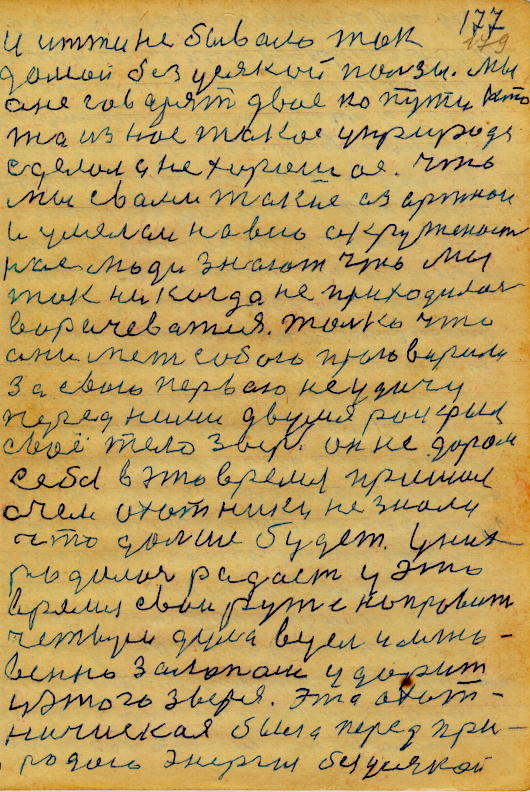 177
179
и итти не бывало так
домой без усякойползы. мы
ане говарят двое по пути кто
та из нас такое у природе
сделол а не хорошое. что
мы с вами такие азартнои
и умелаи на всю окружност
нас люди знают что мы
так никогда не приходилос
ворачеватся. толко что
ани меж собою проговарили
за свою первою неудачу
перед ними двумя раскрил
своё тело звер. он не даром
себя в это время пришол
а чем охотники не знали
что далше будет. у них
родилас радаст у это
время свои ружя направит
четвуи дула вцел и мгно-
венно залпам ударит
у этого зверя. эта охот-
ническая была перед при-
родою энергия без усякой